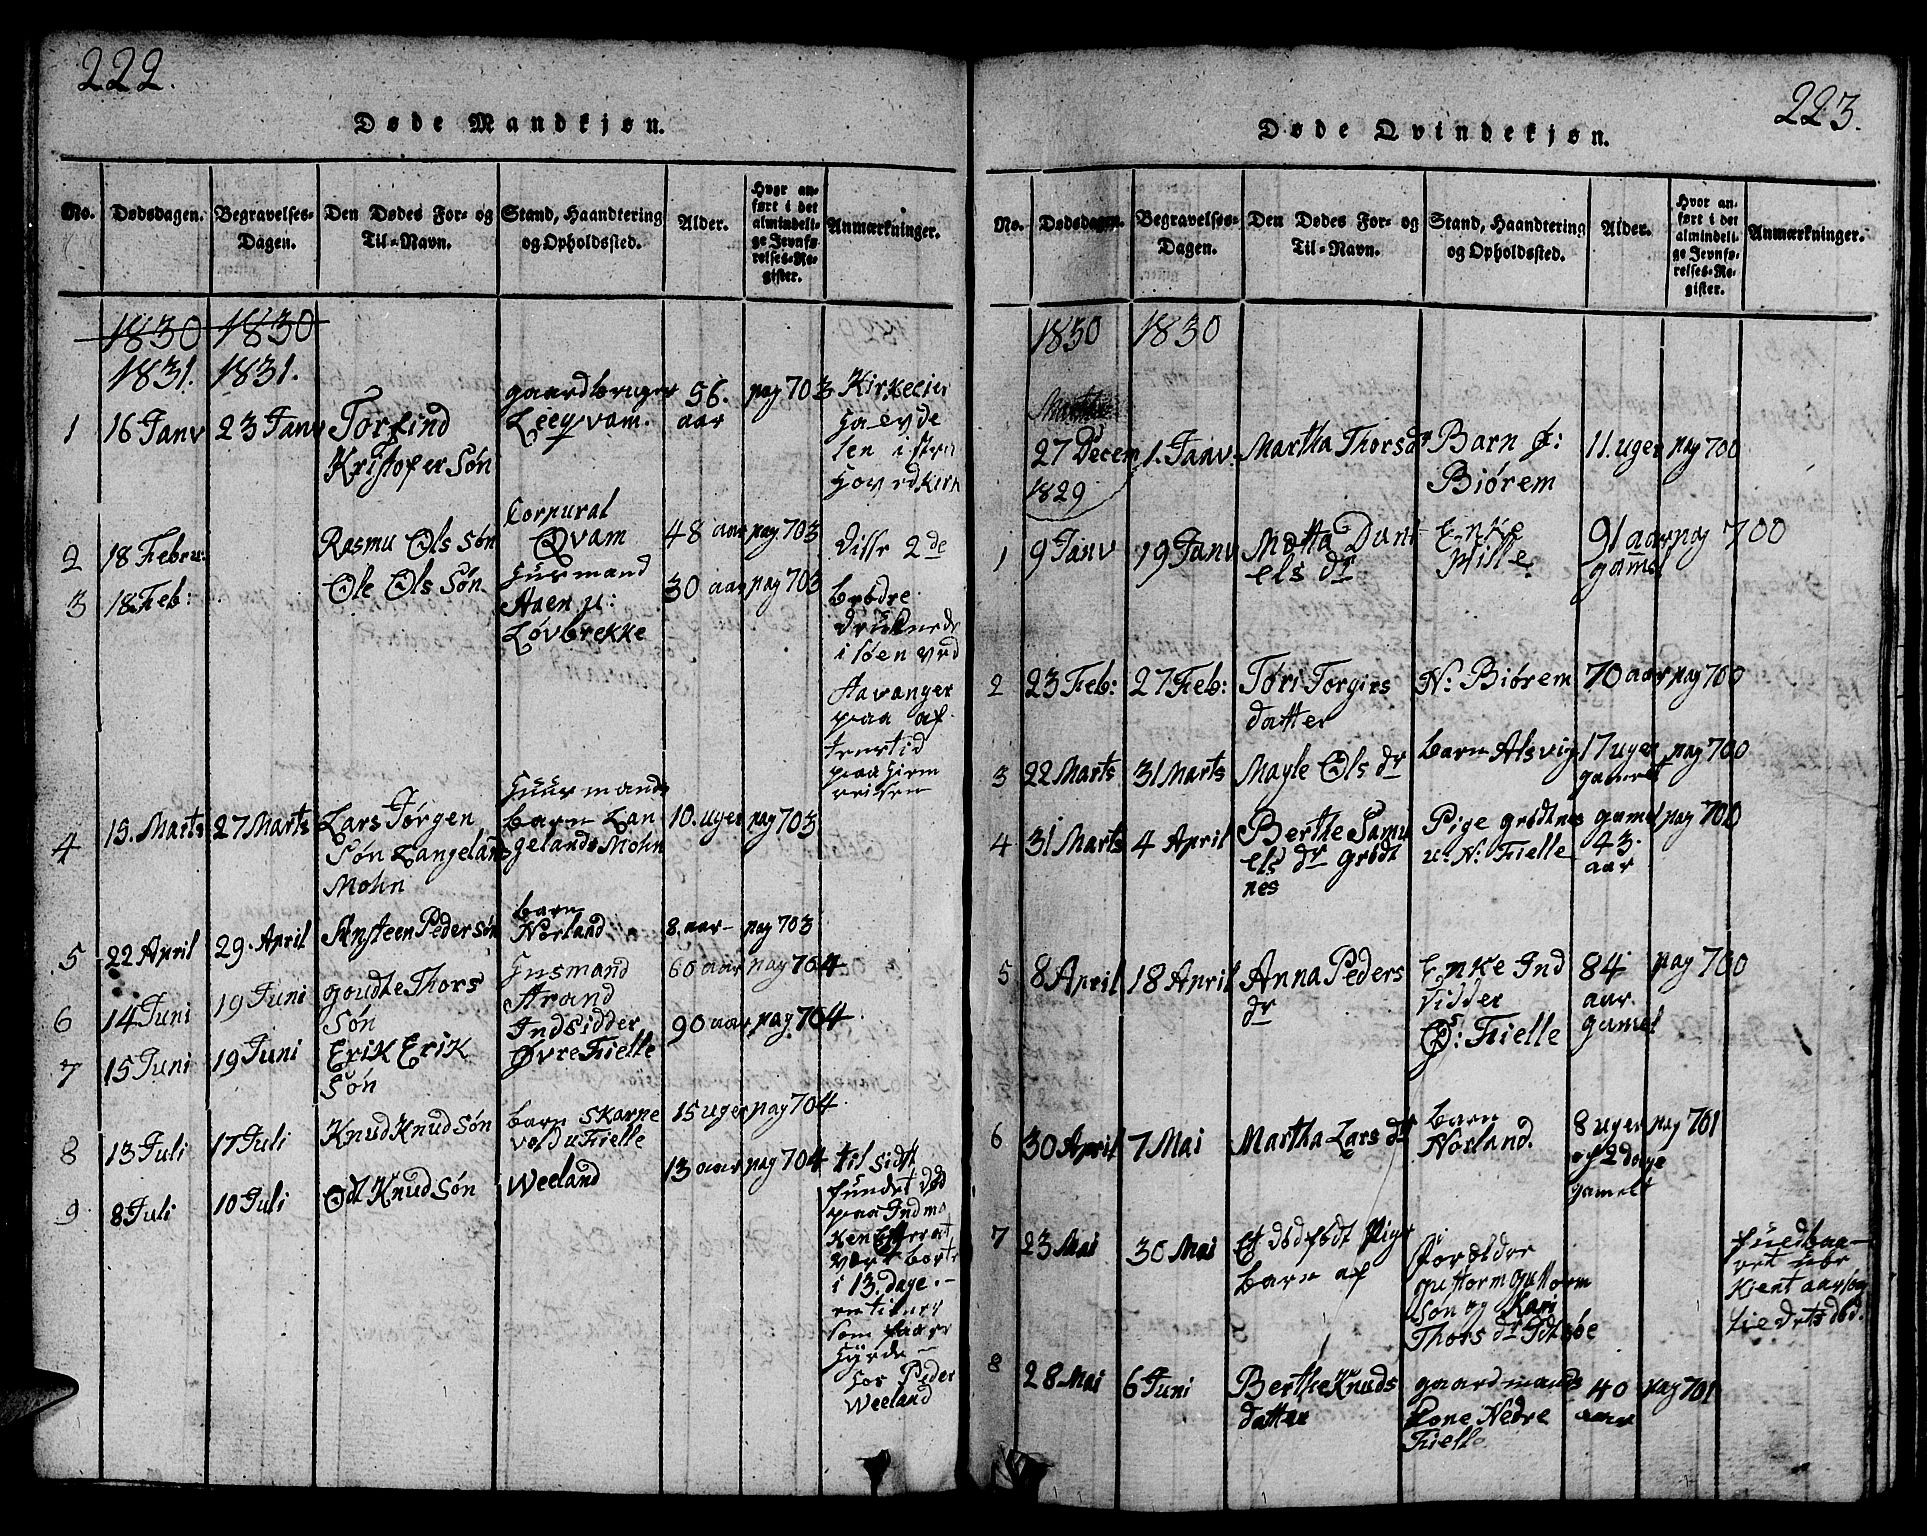 222.
Døde Mandkjøn.
No. Dødsdagen. Begravelses-Dagen. Den Dødes For- og Til-Navn. Stand, Haandtering og Opholdssted. Alder. Hvor anført i det almindelige Jevnførelses-Register. Anmærkninger.
1830 1830
1831. 1831.
1 16 Janv 23 Janv Torfind gaardbruger 56. pag 703 Kirkeeier
KristoferSøn Leeqvam. aar
2 18 Febru: Rasmu Ols Søn Corpural 48 aar pag 703 disse 2de
Qvam
3 18 Feb: Ole Ols Søn Huusmand 30 aar pag 703 brødre
Aaen u: druknede
Løvbrekke i søen ved
Stavanger
paa
paa hiem
reisen
4 15. Marts 27 Marts Lars Jørgen Huusmands 10. uger pag 703
Søn Langelands barn Lan
Mohn gelands Mohn
5 22 April 29. April Ansteen PederSøn barn 8. aar pag 703
Norland
6 14 Juni 19 Juni goudte Thors Husmand 60 aar pag 704
Søn Strand
7 15 Juni 19 Juni Erik Erik Indsidder 90 aar pag 704
Søn Øvre Fielle
8 13 Juli 17 Juli Knud KnudSøn barn Skarpe 15 uger pag 704
vold u Fielle
9. 8 Juli 10 Juli Od KnudSøn Weeland 13 aar pag 704 til sidst
fundet død
paa Indma
ken Efter at
vært borte
i 13. dage.
som faare
Hyrde
hos Peder
Weeland
223.
Døde Qvindekjøn.
No. Dødsdagen. Begravelses-Dagen. Den Dødes For- og Til-Navn. Stand, Haandtering og Opholdssted. Alder. Hvor anført i det almindelige Jevnførelses-Register. Anmærkninger.
1830 1830
27 Decem 1. Janv. Martha Thorsdr Barn f: 11. uger pag 700
1829 Biørem
1 9 Janv 19 Janv Metta Dani Enke 91 aar pag 700
els dr Hille gamel
2 23 Feb: 27 Feb: Tøri Torgirs N: Biørem 70 aar pag 700
datter
3 22 Marts 31 Marts Mayle Ols dr barn Alsvig 17 uger pag 700
gamel
4 31 Marts 4 April Berthe Samu Pige grødtnes gamel pag 700
els dr grødt u: N: Fielle 43.
nes aar
5 8 April 18 April Anna Peders Enke Ind 84 pag 700
dr sidder aar.
Ø: Fielle gamel
6 30 April 7 Mai Martha Lars dr barn 8 uger pag 701
Norland. og 2 dage
gamelt
7 23 Mai 30 Mai Et dødfødt Pige Forældre
barn af guttorm guttorm
Søn og Kari
Thors dr
8 28 Mai 6 Juni Berthe Knuds gaardmands 40 pag 701
datter kone Nedre aar
Fielle